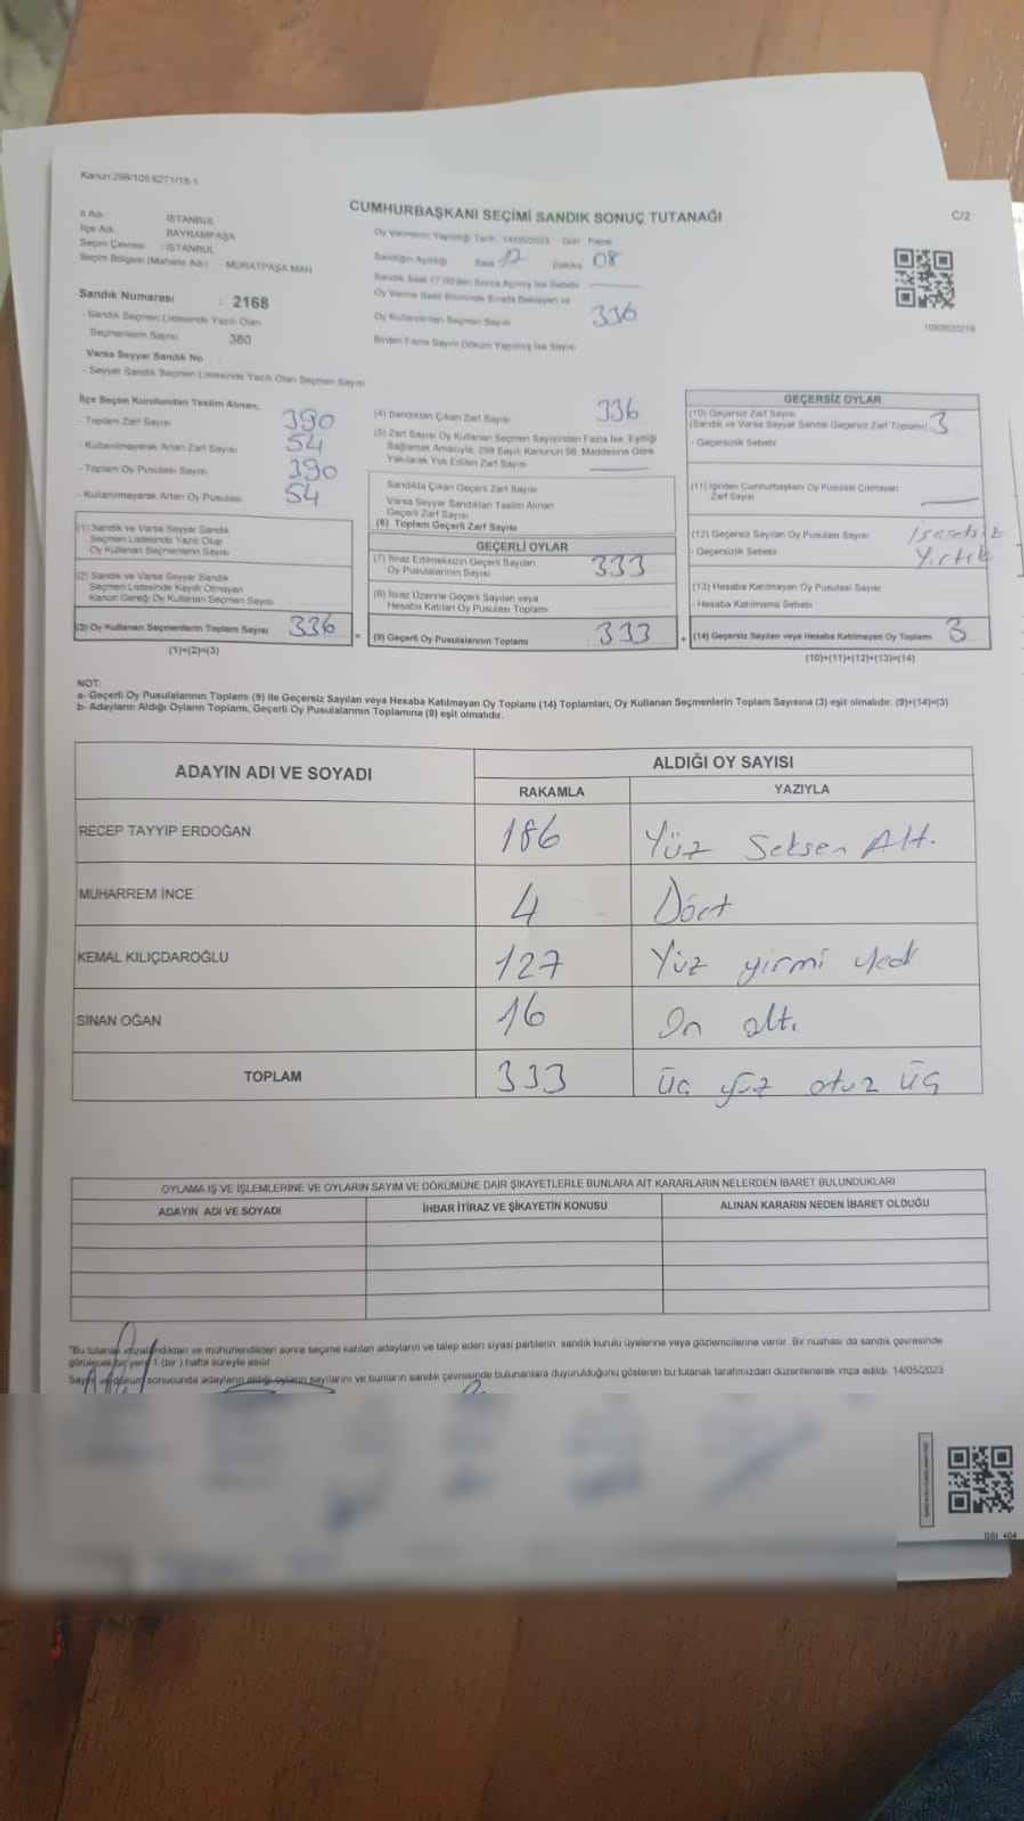 Kanun:298/105 6271/18-1
CUMHURBAŞKANI SEÇİMİ SANDIK SONUÇ TUTANAĞI
C/2
İl Adı : İSTANBUL
İlçe Adı : BAYRAMPAŞA
Seçim Çevresi : İSTANBUL
Seçim Bölgesi (Mahalle Adı) : MURATPAŞA MAH
Sandık Numarası : 2168
- Sandık Seçmen Listesinde Yazılı Olan
Seçmenlerin Sayısı 380
Varsa Seyyar Sandık No
- Seyyar Sandık Seçmen Listesinde Yazılı Olan Seçmen Sayısı
Oy Vermenin Yapıldığı Tarih : 14/05/2023 - Gün : Pazar
Sandığın Açıldığı Saat 17 Dakika 08
Oy Kullananların Seçmen Sayısı 336
Birden Fazla Sayım Döküm Yapılmış İse Sayısı
İlçe Seçim Kurulundan Teslim Alınan;
- Toplam Zarf Sayısı 390
- Kullanılmayarak Artan Zarf Sayısı 54
- Toplam Oy Pusulası Sayısı 390
- Kullanılmayarak Artan Oy Pusulası 54
(1) Sandık ve Varsa Seyyar Sandık
Seçmen Listesinde Yazılı Olup
Oy Kullanan Seçmenlerin Sayısı
(2) Sandık ve Varsa Seyyar Sandık
Seçmen Listesinde Kayıtlı Olmayan
Kanun Gereği Oy Kullanan Seçmen Sayısı
(3) Oy Kullanan Seçmenlerin Toplam Sayısı 336
(1)+(2)=(3)
(4) Sandıktan Çıkan Zarf Sayısı 336
(5) Zarf Sayısı Oy Kullanan Seçmen Sayısından Fazla İse, Eşitliği
Sağlamak Amacıyla, 298 Sayılı Kanunun 98. Maddesine Göre
Yakılarak Yok Edilen Zarf Sayısı
Sandıkta Çıkan Geçerli Zarf Sayısı
Varsa Seyyar Sandıktan Teslim Alınan
Geçerli Zarf Sayısı
(6) Toplam Geçerli Zarf Sayısı
GEÇERLİ OYLAR
(7) İtiraz Edilmeksizin Geçerli Sayılan
Oy Pusulalarının Sayısı 333
(8) İtiraz Üzerine Geçerli Sayılan veya
Hesaba Katılan Oy Pusulası Toplamı
(9) Geçerli Oy Pusulalarının Toplamı 333
GEÇERSİZ OYLAR
(10) Geçersiz Zarf Sayısı
(Sandık ve Varsa Seyyar Sandık Geçersiz Zarf Toplamı) 3
- Geçersizlik Sebebi
(11) İçinden Cumhurbaşkanı Oy Pusulası Çıkmayan
Zarf Sayısı
(12) Geçersiz Sayılan Oy Pusulası Sayısı
- Geçersizlik Sebebi Yırtık
(13) Hesaba Katılmayan Oy Pusulası Sayısı
- Hesaba Katılmama Sebebi
(14) Geçersiz Sayılan veya Hesaba Katılmayan Oy Toplamı 3
(10)+(11)+(12)+(13)=(14)
NOT:
a- Geçerli Oy Pusulalarının Toplamı (9) ile Geçersiz Sayılan veya Hesaba Katılmayan Oy Toplamı (14) Toplamları, Oy Kullanan Seçmenlerin Toplam Sayısına (3) eşit olmalıdır. (9)+(14)=(3)
b- Adayların Aldığı Oyların Toplamı, Geçerli Oy Pusulalarının Toplamına (9) eşit olmalıdır.
ADAYIN ADI VE SOYADI
ALDIĞI OY SAYISI
RAKAMLA YAZIYLA
RECEP TAYYİP ERDOĞAN 186 Yüz Seksen Altı
MUHARREM İNCE 4 Dört
KEMAL KILIÇDAROĞLU 127 Yüz yirmi yedi
SİNAN OĞAN 16 On altı
TOPLAM 333 üç yüz otuz üç
OYLAMA İŞ VE İŞLEMLERİNE VE OYLARIN SAYIM VE DÖKÜMÜNE DAİR ŞİKAYETLERLE BUNLARA AİT KARARLARIN NELERDEN İBARET BULUNDUKLARI
ADAYIN ADI VE SOYADI İHBAR İTİRAZ VE ŞİKAYETİN KONUSU ALINAN KARARIN NEDEN İBARET OLDUĞU
"Bu tutanak imzalandıktan ve mühürlendikten sonra seçime katılan adayların ve talep eden siyasi partilerin sandık kurulu üyelerine veya gözlemcilerine verilir. Bir nüshası da sandık çevresinde
görülecek bir yere 1 (bir ) hafta süreyle asılır
Sayım ve döküm sonucunda adayların aldığı oyların sayılarını ve bunların sandık çevresinde bulunanlara duyurulduğunu gösteren bu tutanak tarafımızdan düzenlenerek imza edildi. 14/05/2023